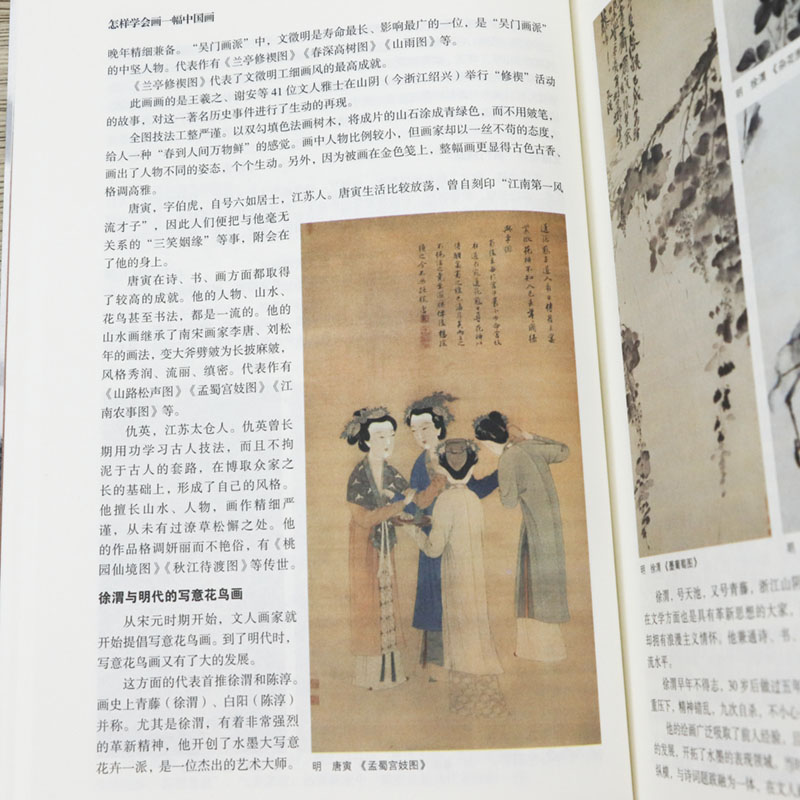 怎样学会画一幅中国画
晚年精细兼备。“吴门画派”中，文徵明是寿命最长、影响最广的一位，是“吴门画派”
的中坚人物。代表作有《兰亭修禊图》《春深高树图》《山雨图》等。
《兰亭修禊图》代表了文徵明工细画风的最高成就。
此画画的是王羲之、谢安等 41 位文人雅士在山阴（今浙江绍兴）举行“修禊”活动
的故事，对这一著名历史事件进行了生动的再现。
全图技法工整严谨。以双勾填色法画树木，将成片的山石涂成青绿色，而不用皴笔，
给人一种“春到人间万物鲜”的感觉。画中人物比例较小，但画家却以一丝不苟的态度，
画出了人物不同的姿态，个个生动。另外，因为被画在金色笺上，整幅画更显得古色古香、
格调高雅。
唐寅，字伯虎，自号六如居士，江苏人。唐寅生活比较放荡，曾自刻印“江南第一风
流才子”，因此人们便把与他毫无
关系的“三笑姻缘”等事，附会在
了他的身上。
唐寅在诗、书、画方面都取得
了较高的成就。他的人物、山水、
花鸟甚至书法，都是一流的。他的
山水画继承了南宋画家李唐、刘松
年的画法，变大斧劈皴为长披麻皴，
风格秀润、流丽、缜密。代表作有
《山路松声图》《孟蜀宫妓图》《江
南农事图》等。
仇英，江苏太仓人。仇英曾长
期用功学习古人技法，而且不拘
泥于古人的套路，在博取众家之
长的基础上，形成了自己的风格。
他擅长山水、人物，画作精细严
谨，从未有过潦草松懈之处。他
的作品格调妍丽而不艳俗，有《桃
园仙境图》《秋江待渡图》等传世。
徐渭与明代的写意花鸟画
从宋元时期开始，文人画家就
开始提倡写意花鸟画。到了明代时，
写意花鸟画又有了大的发展。
这方面的代表首推徐渭和陈淳。
画史上青藤（徐渭）、白阳（陈淳）
并称。尤其是徐渭，有着非常强烈
的革新精神，他开创了水墨大写意
花卉一派，是一位杰出的艺术大师。
明 唐寅 《孟蜀宫妓图》
明 徐渭
明 徐渭《墨葡萄图》
明
徐渭，号天池，又号青藤，浙江山阴
在文学方面也是具有革新思想的大家，
却拥有浪漫主义情怀。他兼通诗、书、
流水平。
徐渭早年不得志，30 岁后做过五年
重压下，精神错乱，九次自杀，不小心
他的绘画广泛吸取了前人经验，
发展，开拓了水墨的表现领域。
纵横，与诗词题跋融为一体。在文人